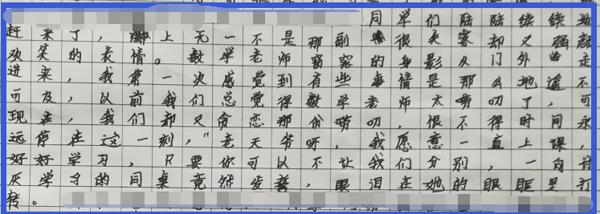 同学们陆陆续续地
赶来了，脸上无一不是那副很失容却又强颜
欢笑的表情。数学老师窈窕的身影从门外走
进来，我第一次感觉到有些事情是那么地遥不
可及，以前我们总觉得数学老师太唠叨了，可
现在，我们却又贪恋那份唠叨，恨不得时间永
远停在这一刻，“老天爷呀，我愿意一直上课，
好好学习，只要你可以不让我们分别，一向讨
厌学习的同桌竟然发誓，眼泪在她的眼眶里打
转。